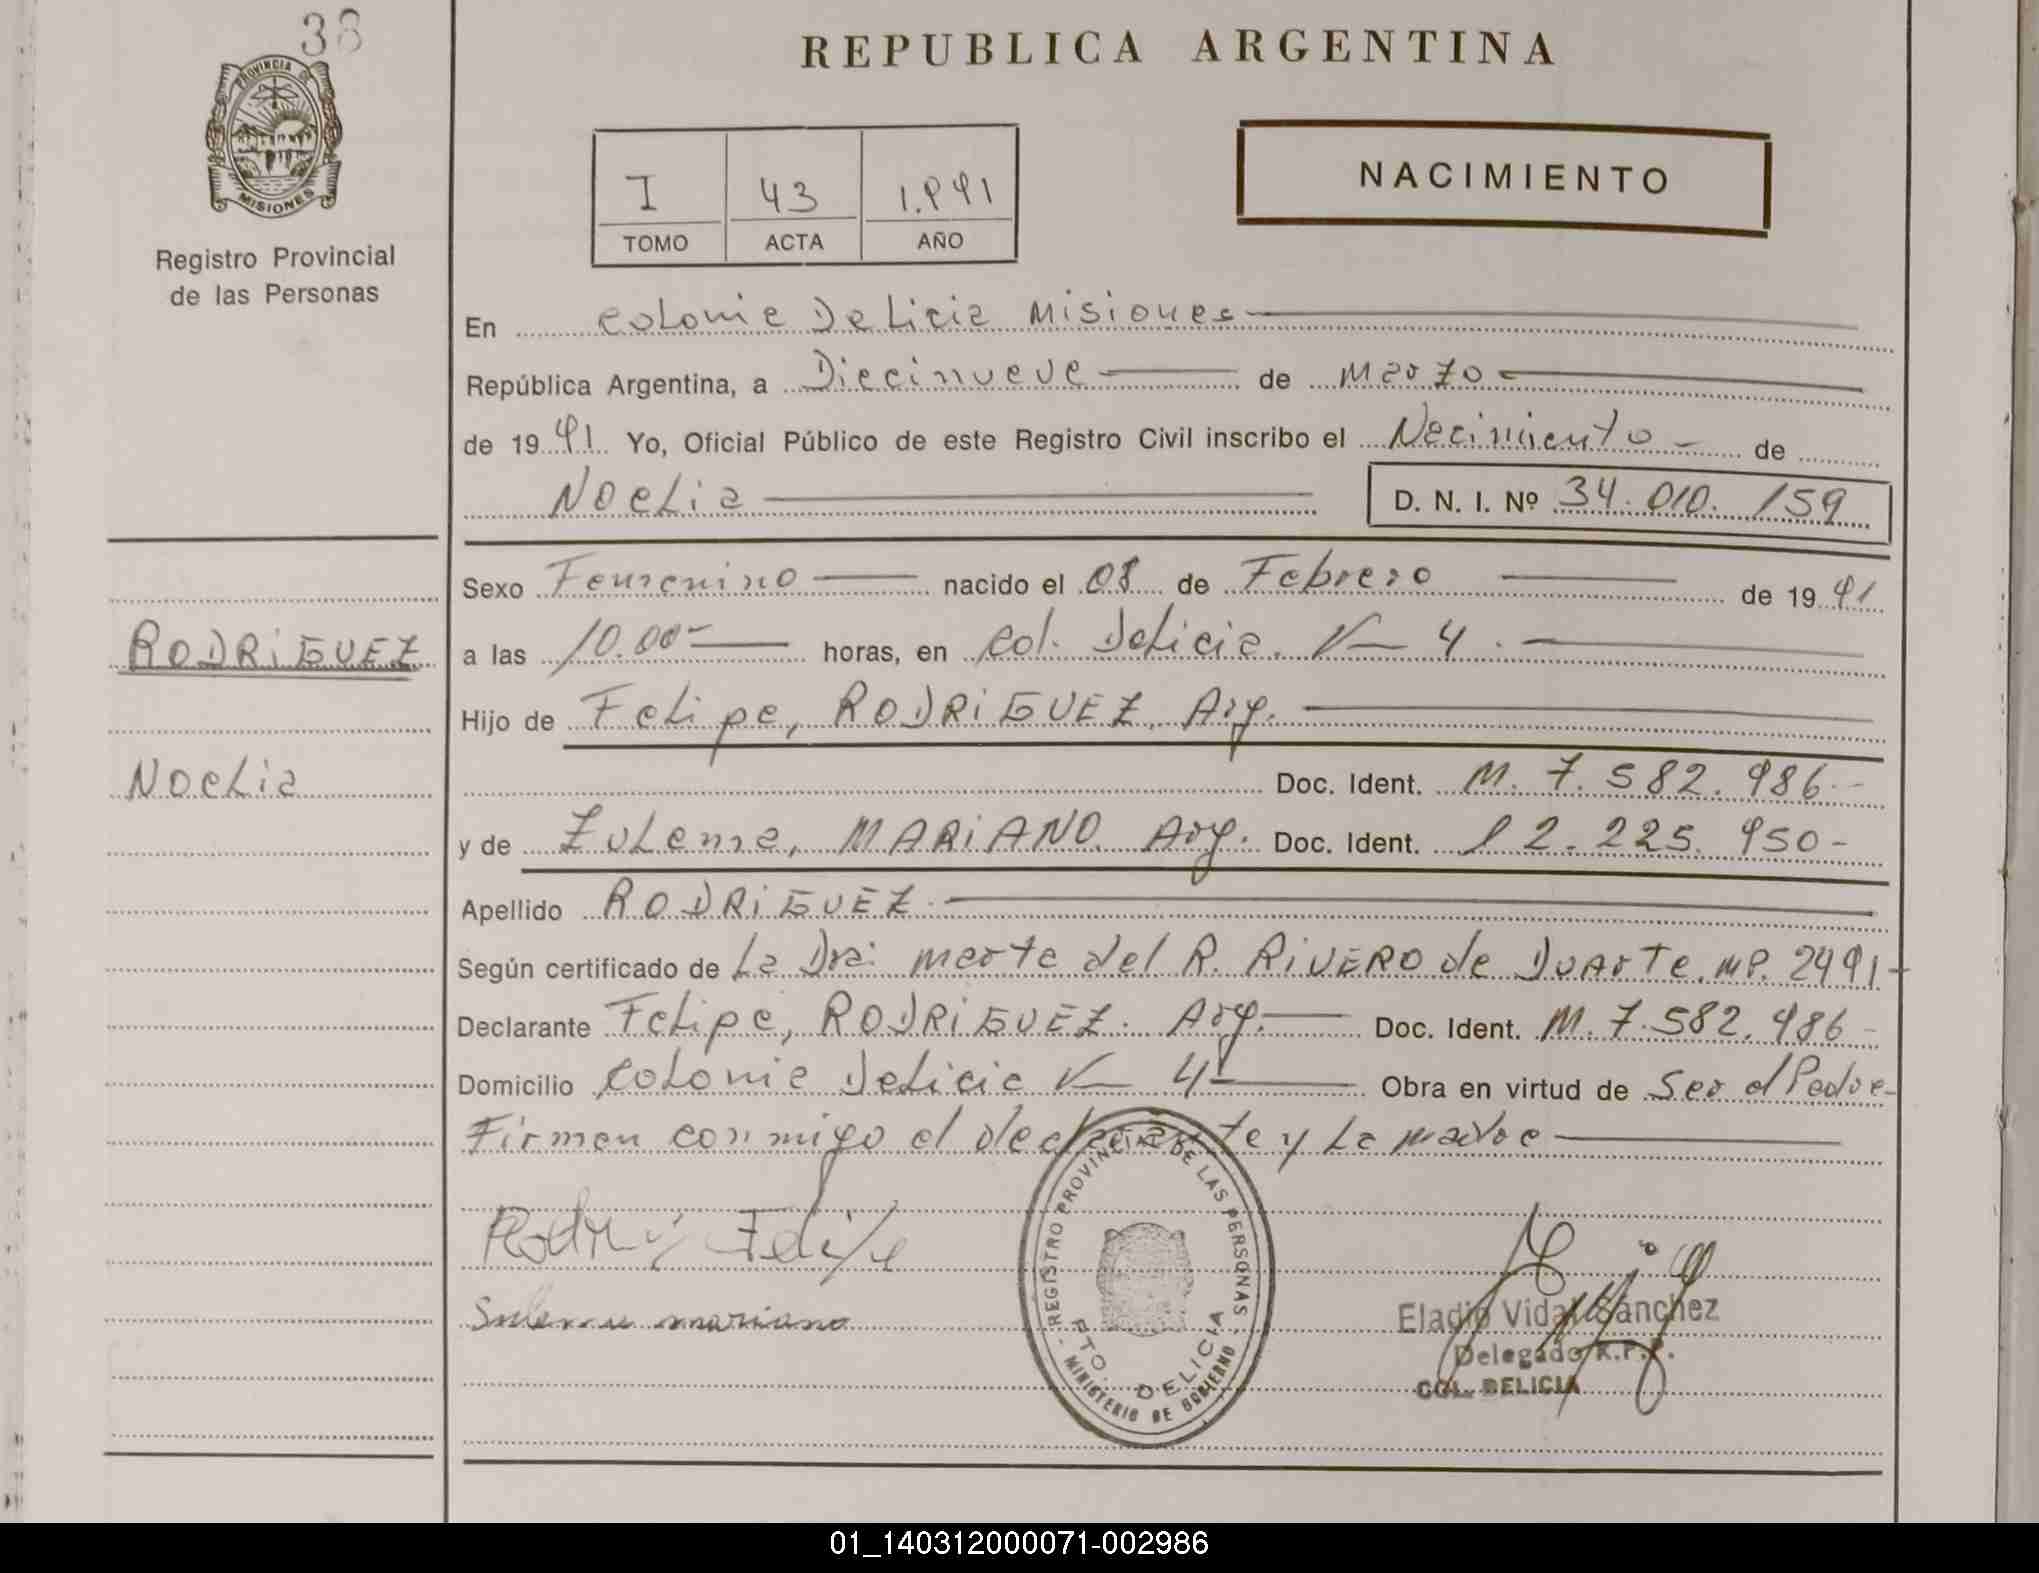 38
PROVINCIA DE
MISIONES
Registro Provincial
de las Personas
REPUBLICA ARGENTINA
I 43 1.991
TOMO ACTA AÑO
NACIMIENTO
En Colonia Delicia Misiones
República Argentina, a Diecinueve de Marzo
de 1991 Yo, Oficial Público de este Registro Civil inscribo el Nacimiento de
Noelia D. N. I. Nº 34.010.159
Sexo Femenino nacido el 08 de Febrero de 1991
a las 10.00 horas, en Col. Delicia. K 4.
RODRIGUEZ
Hijo de Felipe, RODRIGUEZ. Arg.
Noelia
Doc. Ident. M. 7.582.986-
y de Zulema, MARIANO. Arg. Doc. Ident. 12.225.950-
Apellido RODRIGUEZ.
Según certificado de La Dra: Marta del R. RIVERO de DUARTE. MP. 2491-
Declarante Felipe, RODRIGUEZ. Arg. Doc. Ident. M. 7.582.986-
Domicilio Colonia Delicia K 4 Obra en virtud de Ser el Padre
Firman conmigo el declarante y La madre
Felipe
mariano
- REGISTRO PROVINCIAL DE LAS PERSONAS -
PTO. DELICIA
MINISTERIO DE GOBIERNO
Eladio Vidal Sánchez
Delegado R.P.P.
COL. DELICIA
01_140312000071-002986